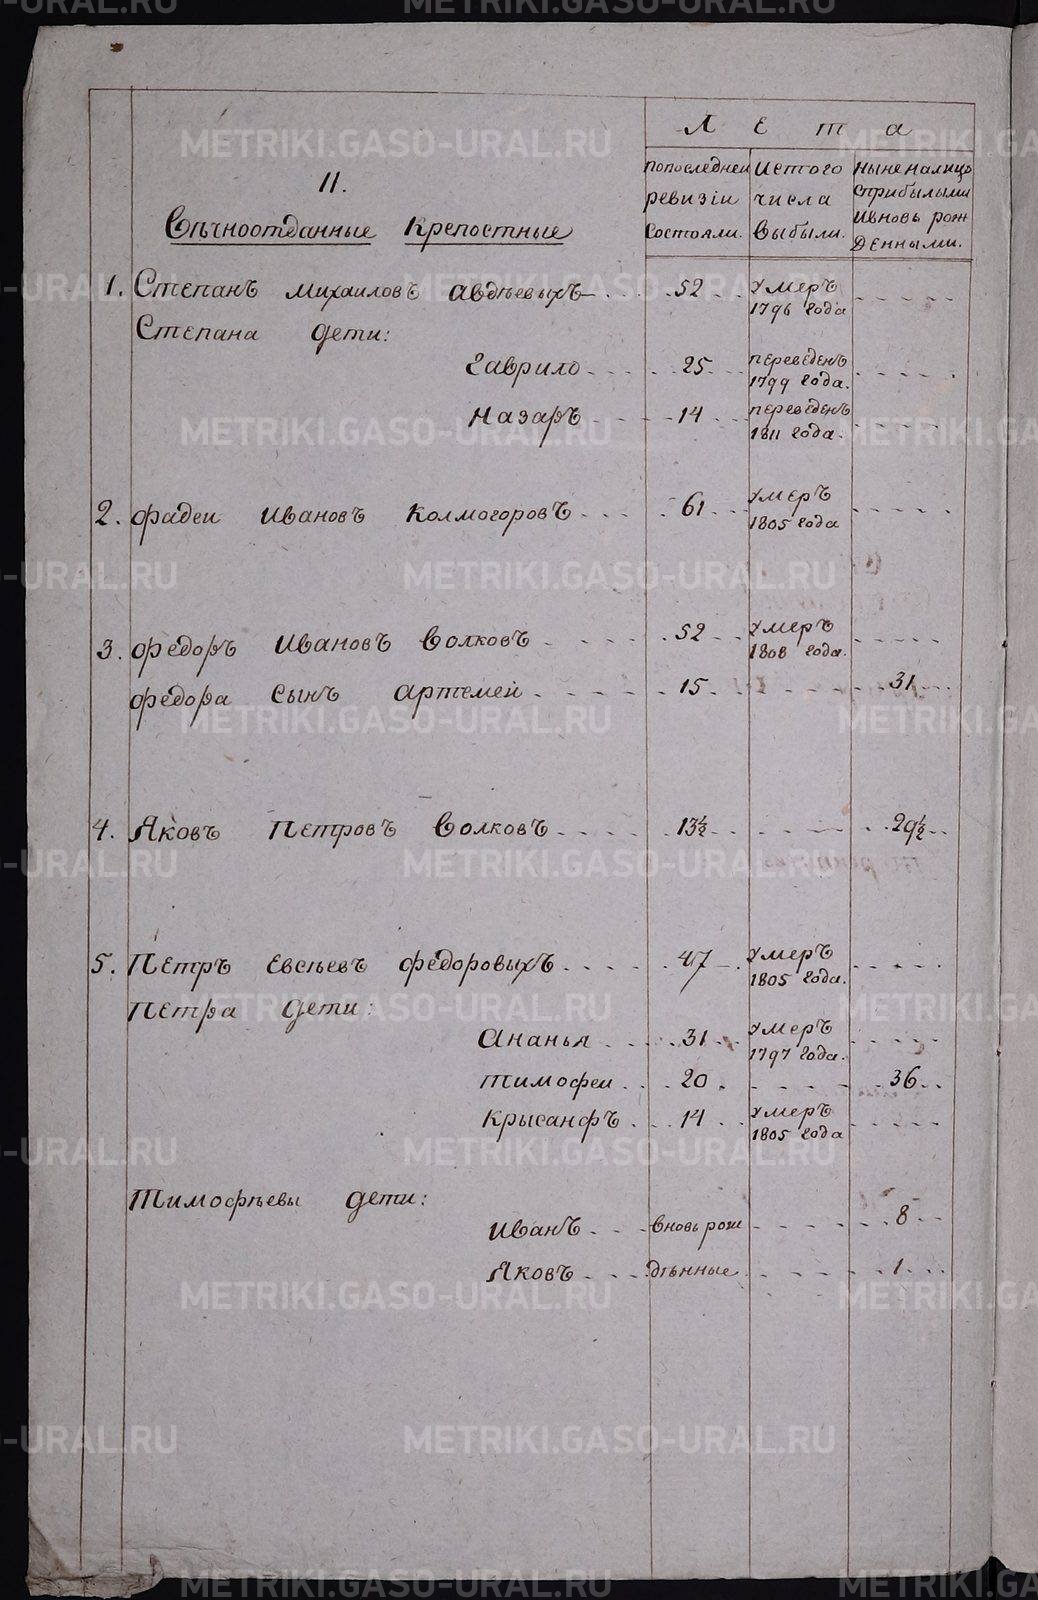 Л е т а
попоследнеи ревизiи состояли.
Истого числа выбыли.
Ныне налицо сприбылыми ивновь рожденными.
II.
Вѣчноотданные Крепостные
1. Степанъ михаиловъ авдѣевыхъ 52 умеръ 1796 года
Степана дети:
Гаврило 25 переведенъ 1799 года.
Назаръ 14 переведенъ 1811 года.
2. фадеи Ивановъ Колмогоровъ 61 умеръ 1805 года
3. федоръ Ивановъ Волковъ 52 умеръ 1808 года.
федора сынъ артемей 15 31
4. Яковъ Петровъ Волковъ 13½ 29½
5. Петръ Евсѣевъ федоровыхъ 47 умеръ 1805 года.
Петра дети:
Ананья 31 умеръ 1797 года.
тимофеи 20 36
крысанфъ 14 умеръ 1805 года
Тимофѣевы дети:
Иванъ вновь рож 8
Яковъ дѣнные 1
METRIKI.GASO-URAL.RU